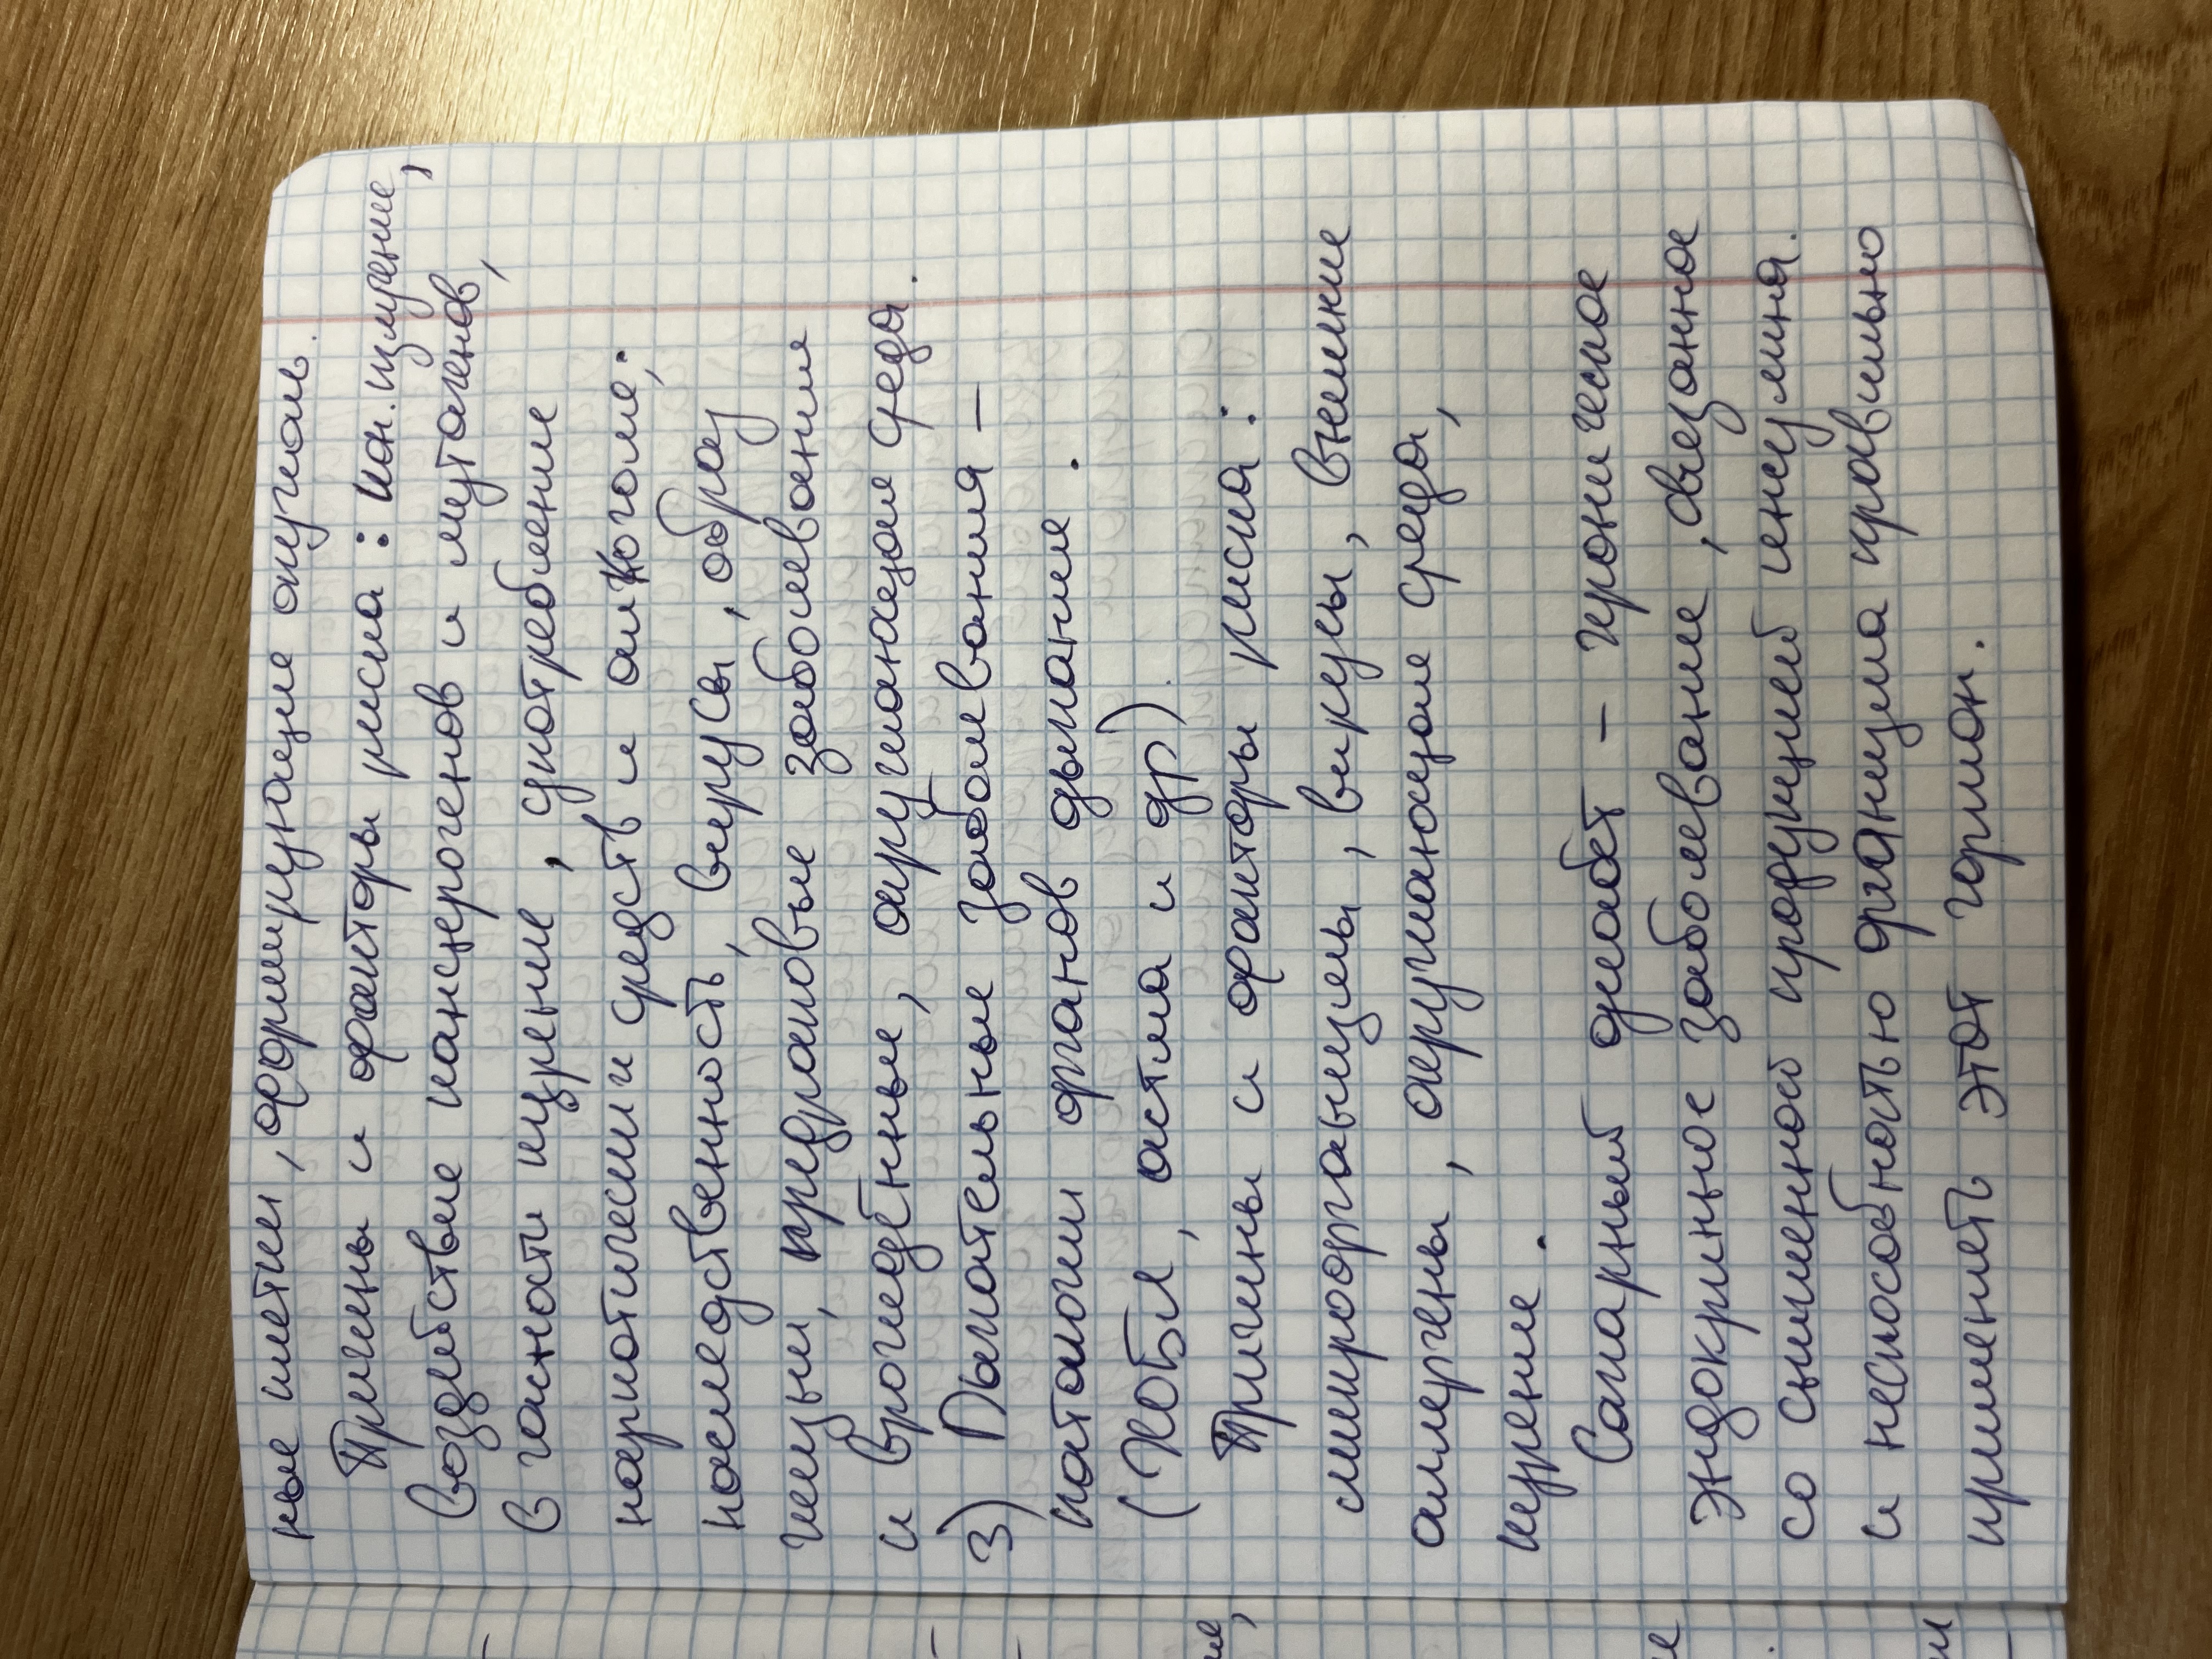 ные клетки, формирующие опухоль.
Причины и факторы риска: ион. излучение,
Воздействие канцерогенов и мутагенов,
в частности курение, употребление
наркотических средств и алкоголя;
наследственность, вирусы, образ
жизни, предраковые заболевания
и врождённые, окружающая среда.
3) Дыхательные заболевания –
патологии органов дыхания.
(ХОБЛ, астма и др).
Причины и факторы риска:
микроорганизмы, вирусы, внешние
аллергены, окружающая среда,
курение.
Сахарный диабет – хроническое
эндокринное заболевание, связанное
со сниженной продукцией инсулина.
и неспособностью организма правильно
применять этот гормон.